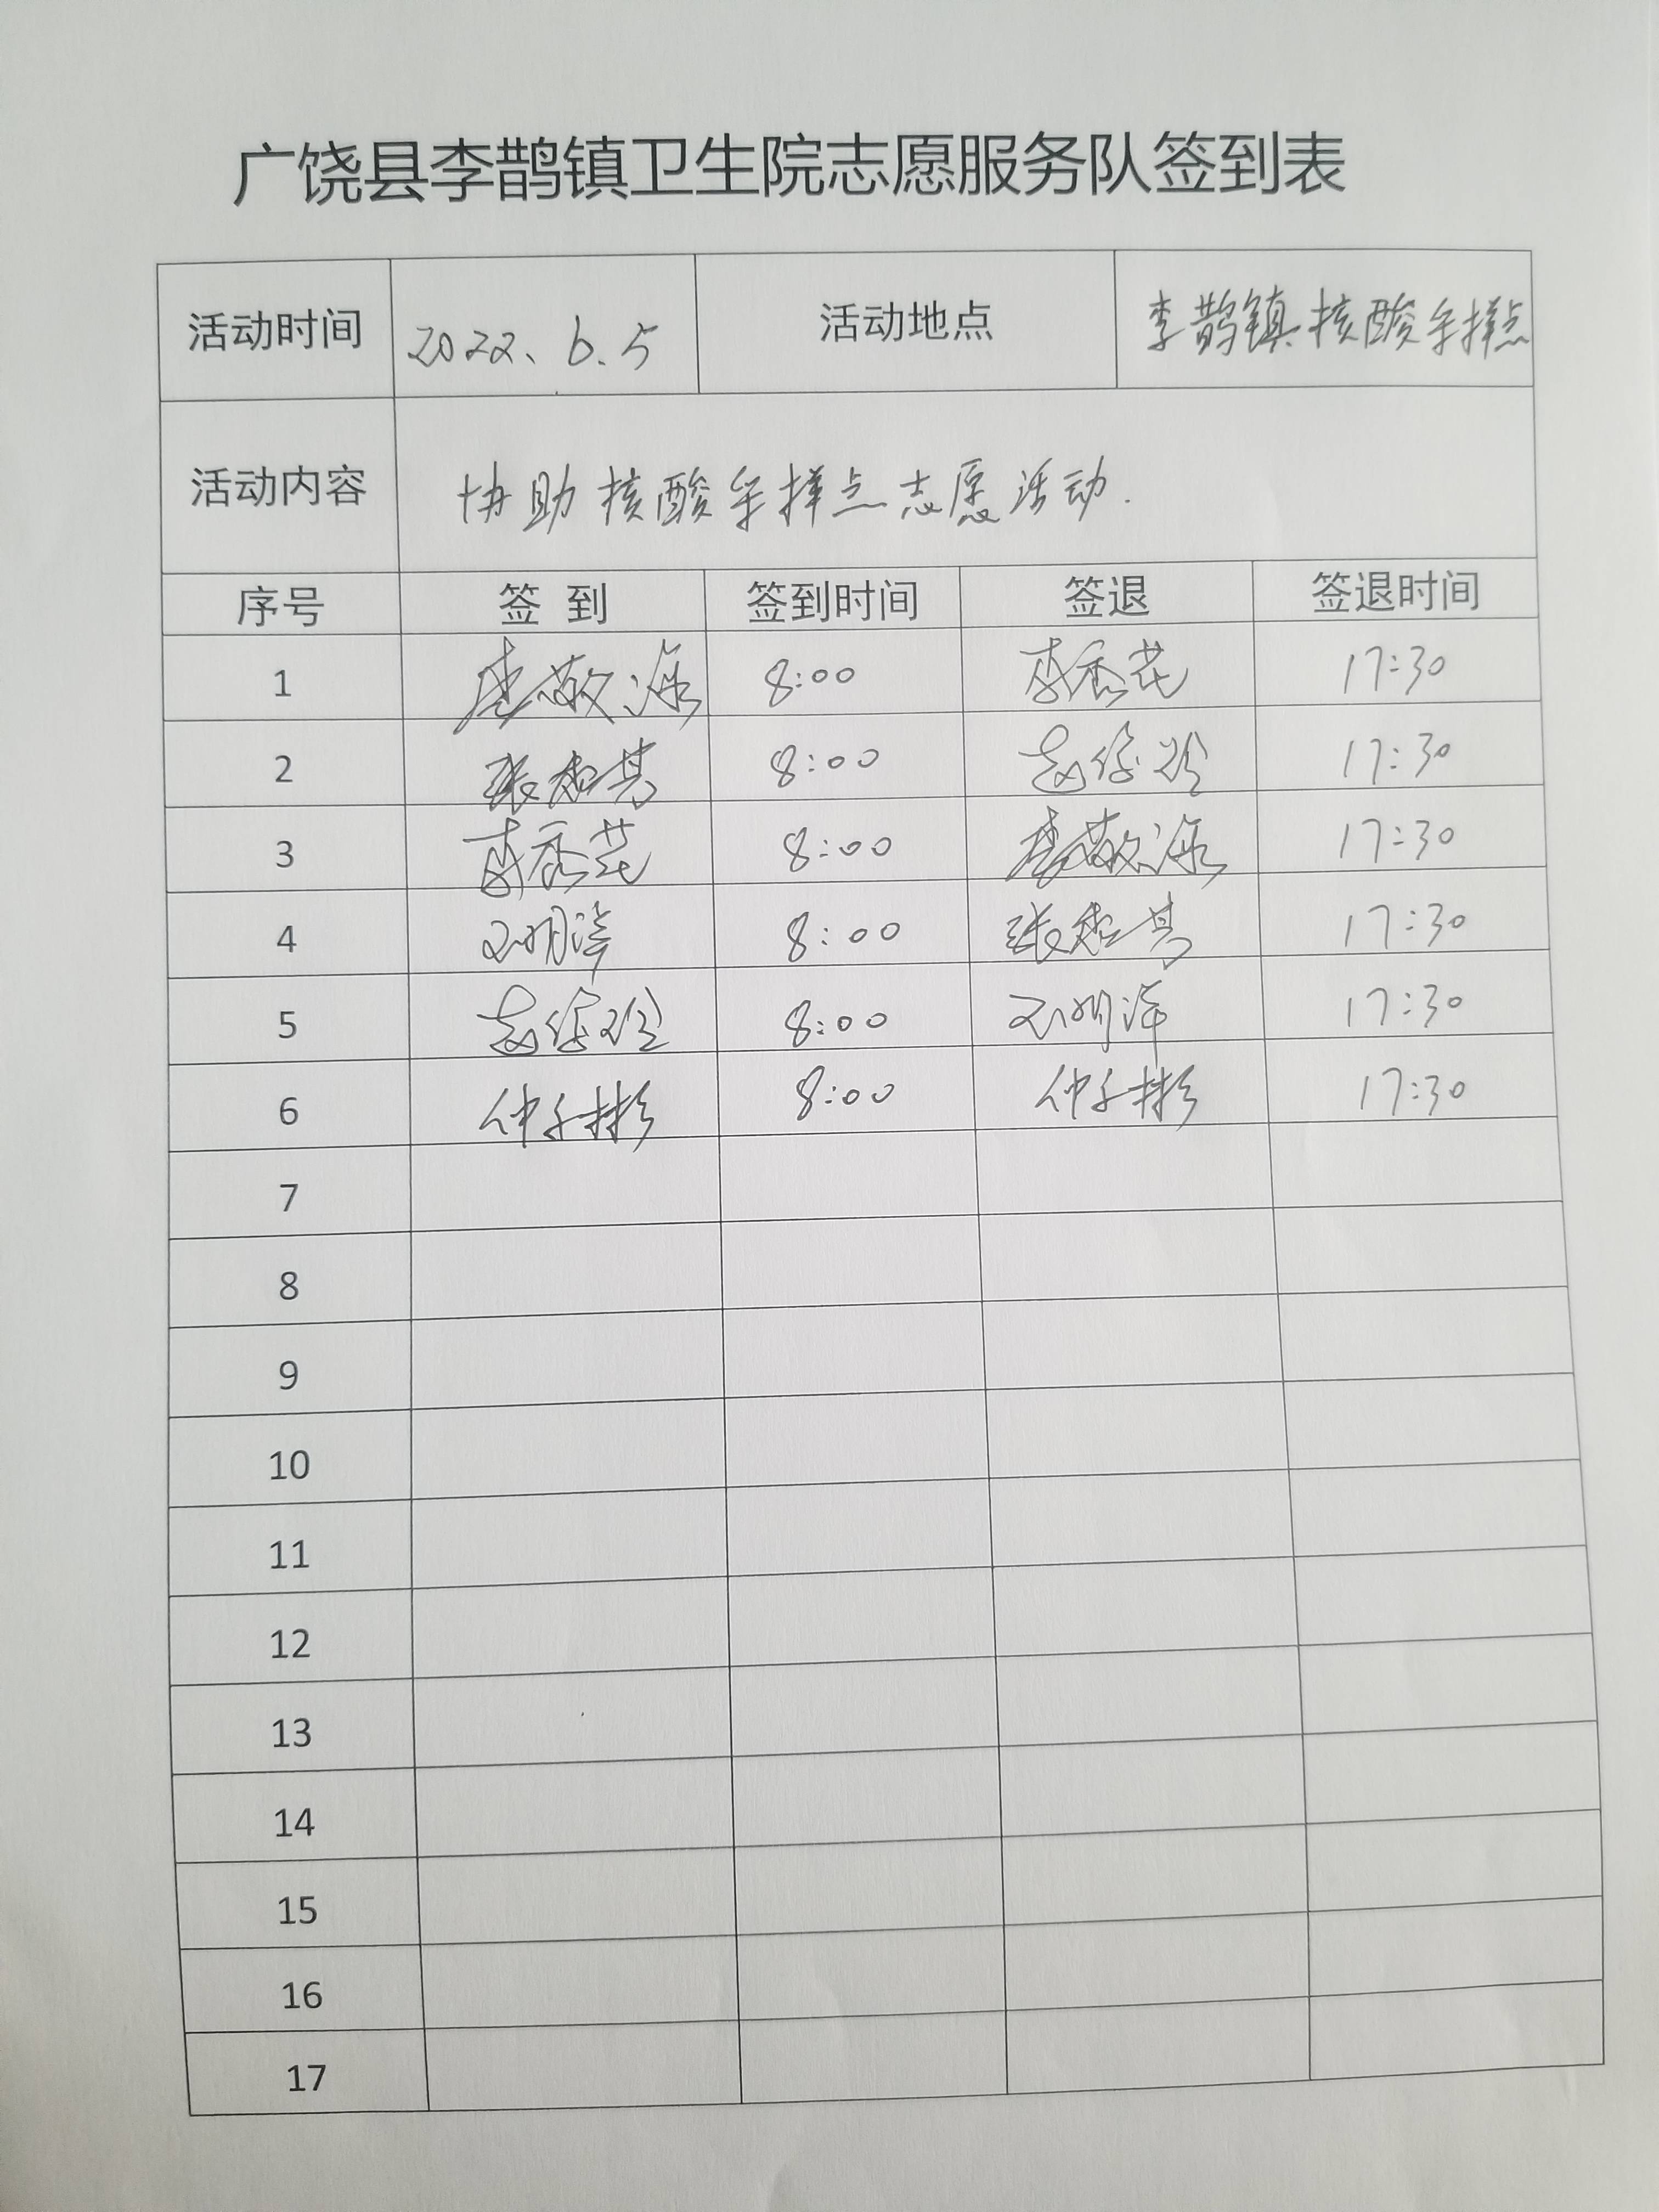 广饶县李鹊镇卫生院志愿服务队签到表
活动时间 2022.6.5 活动地点 李鹊镇核酸采样点
活动内容 协助核酸采样点志愿活动.
序号 签到 签到时间 签退 签退时间
1 8:00 李秀花 17:30
2 8:00 17:30
3 李秀花 8:00 17:30
4 8:00 17:30
5 8:00 17:30
6 仲子彬 8:00 仲子彬 17:30
7
8
9
10
11
12
13
14
15
16
17